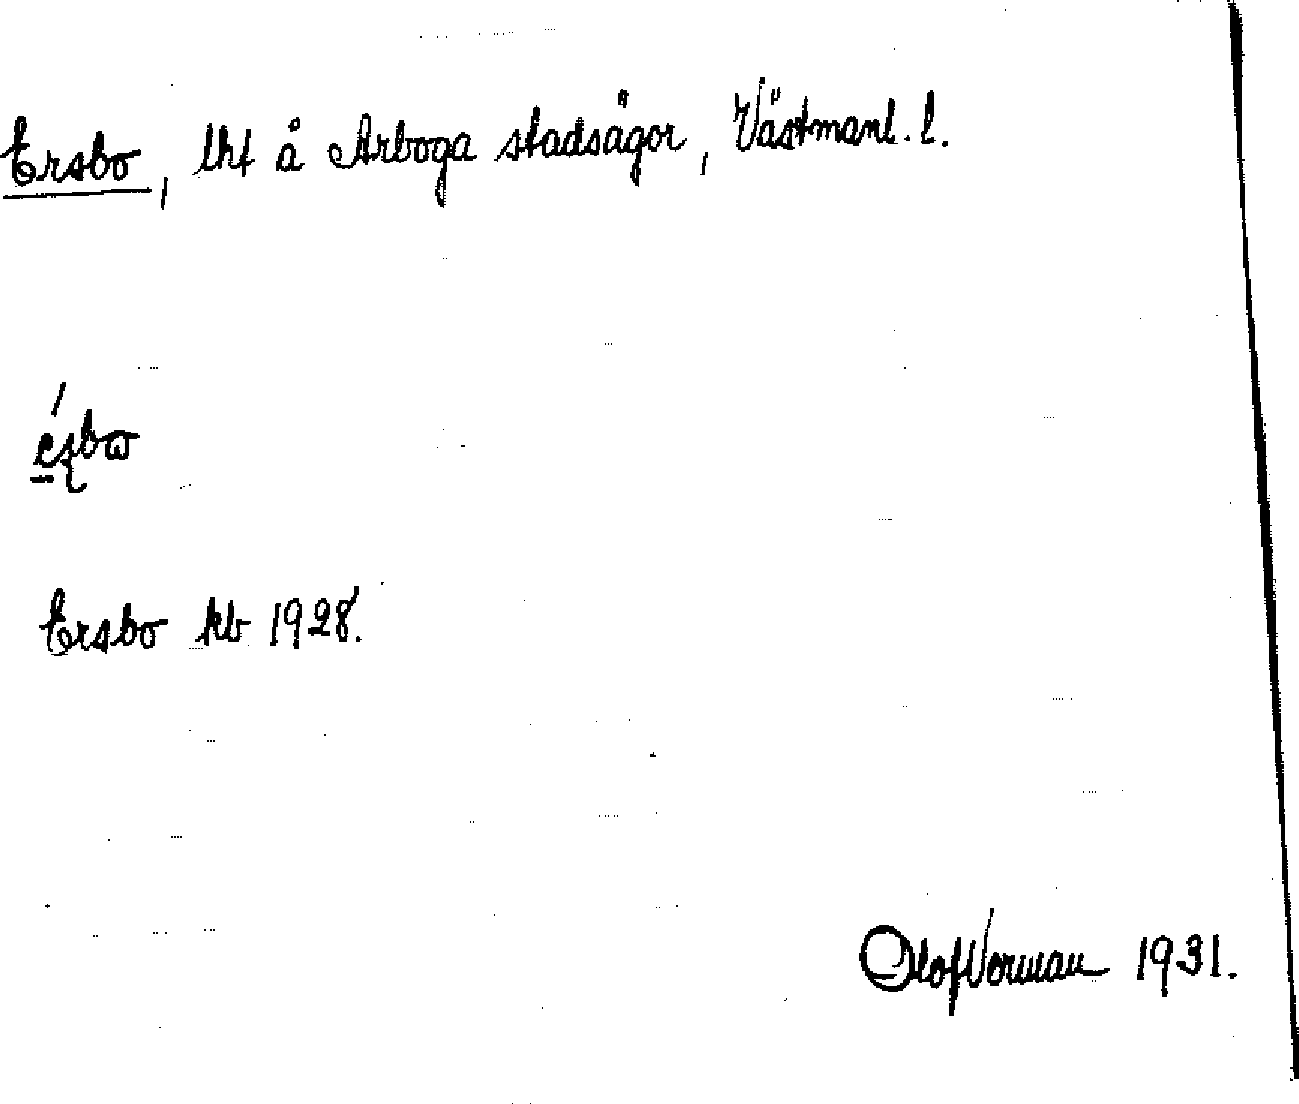 Ersbo, lht å Arboga stadsägor, Västmanl. l.
Ersbo kb 1928.
Olof Vorman 1931.